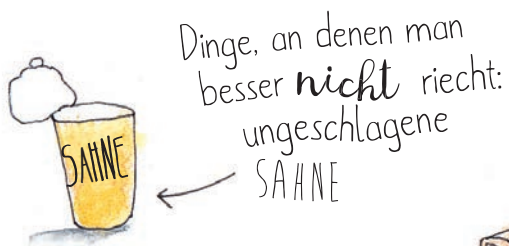 Dinge, an denen man
besser nicht riecht:
ungeschlagene
SAHNE
SAHNE